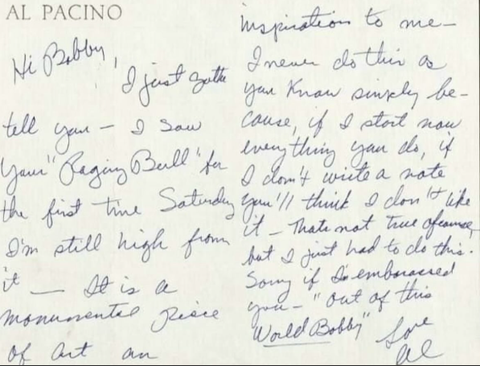 AL PACINO
Hi Bobby,
I just gotta
tell you — I saw
your "Raging Bull" for
the first time Saturday
I'm still high from
it — It is a
monumental piece
of art an
inspiration to me —
I never do this as
you know simply be-
cause, if I start now
everything you do, if
I don't write a note
you'll think I don't like
it — Thats not true ofcourse,
but I just had to do this.
Sorry if I's embarassed
you — "out of this
World Bobby"
Love
Al